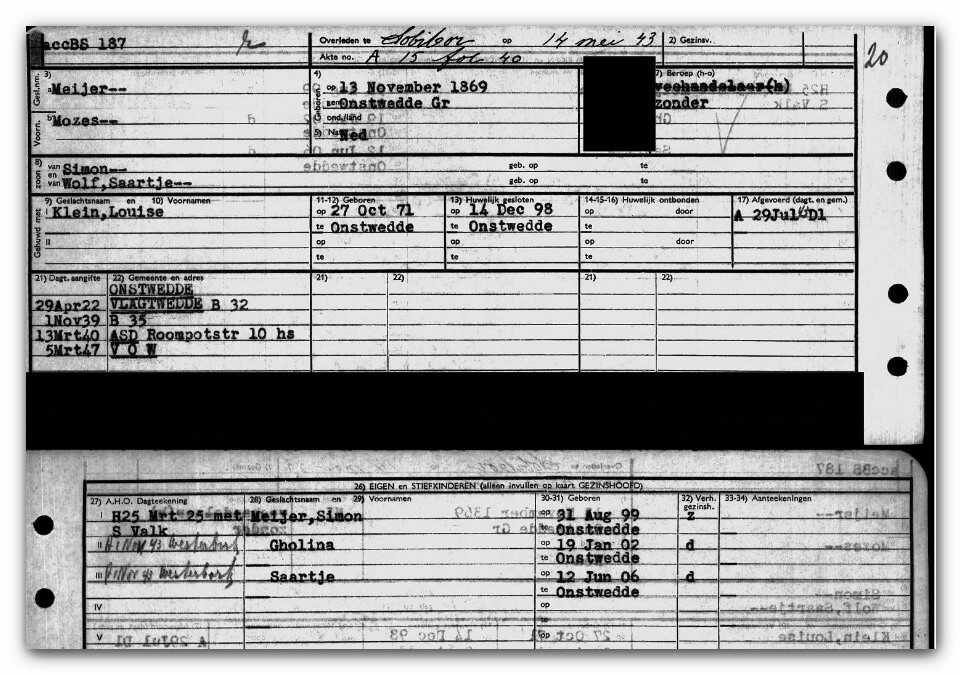 accBS 187
Overleden te Sobibor op 14 mei 43 2) Gezinsv.
Akte no. A 15 fol 40
20
Gesl.nm. 3) a Meijer--
4) Geboren op 13 November 1869
7) Beroep (h-o)
veehandelaar(h)
gem. Onstwedde Gr
zonder
Voorn. b Mozes--
ond./land
5) Nat. Ned
8) zoon van Simon-- geb. op te
en van Wolf,Saartje-- geb. op te
Gehuwd met 9) Geslachtsnaam en 10) Voornamen
11-12) Geboren 13) Huwelijk gesloten 14-15-16) Huwelijk ontbonden 17) Afgevoerd (dagt. en gem.)
I Klein,Louise op 27 Oct 71 op 14 Dec 98 op door A 29Jul Dl
te Onstwedde te Onstwedde te
II op op op door
te te te
21) Dagt. aangifte 22) Gemeente en adres 21) 22) 21) 22)
ONSTWEDDE
29Apr22 VLAGTWEDDE B 32
1Nov39 B 35
13Mrt40 ASD Roompotstr 10 hs
5Mrt47 V O W
26) EIGEN en STIEFKINDEREN (alleen invullen op kaart GEZINSHOOFD)
27) A.H.O. Dagteekening 28) Geslachtsnaam en 29) Voornamen 30-31) Geboren 32) Verh. gezinsh. 33-34) Aanteekeningen
I H25 Mrt 25 met Meijer,Simon op 31 Aug 99 z
S Valk te Onstwedde
II 1 Nov 43 Westerbork Gholina op 19 Jan 02 d
te Onstwedde
III 1 Nov 43 Westerbork Saartje op 12 Jun 06 d
te Onstwedde
IV op
te
V op